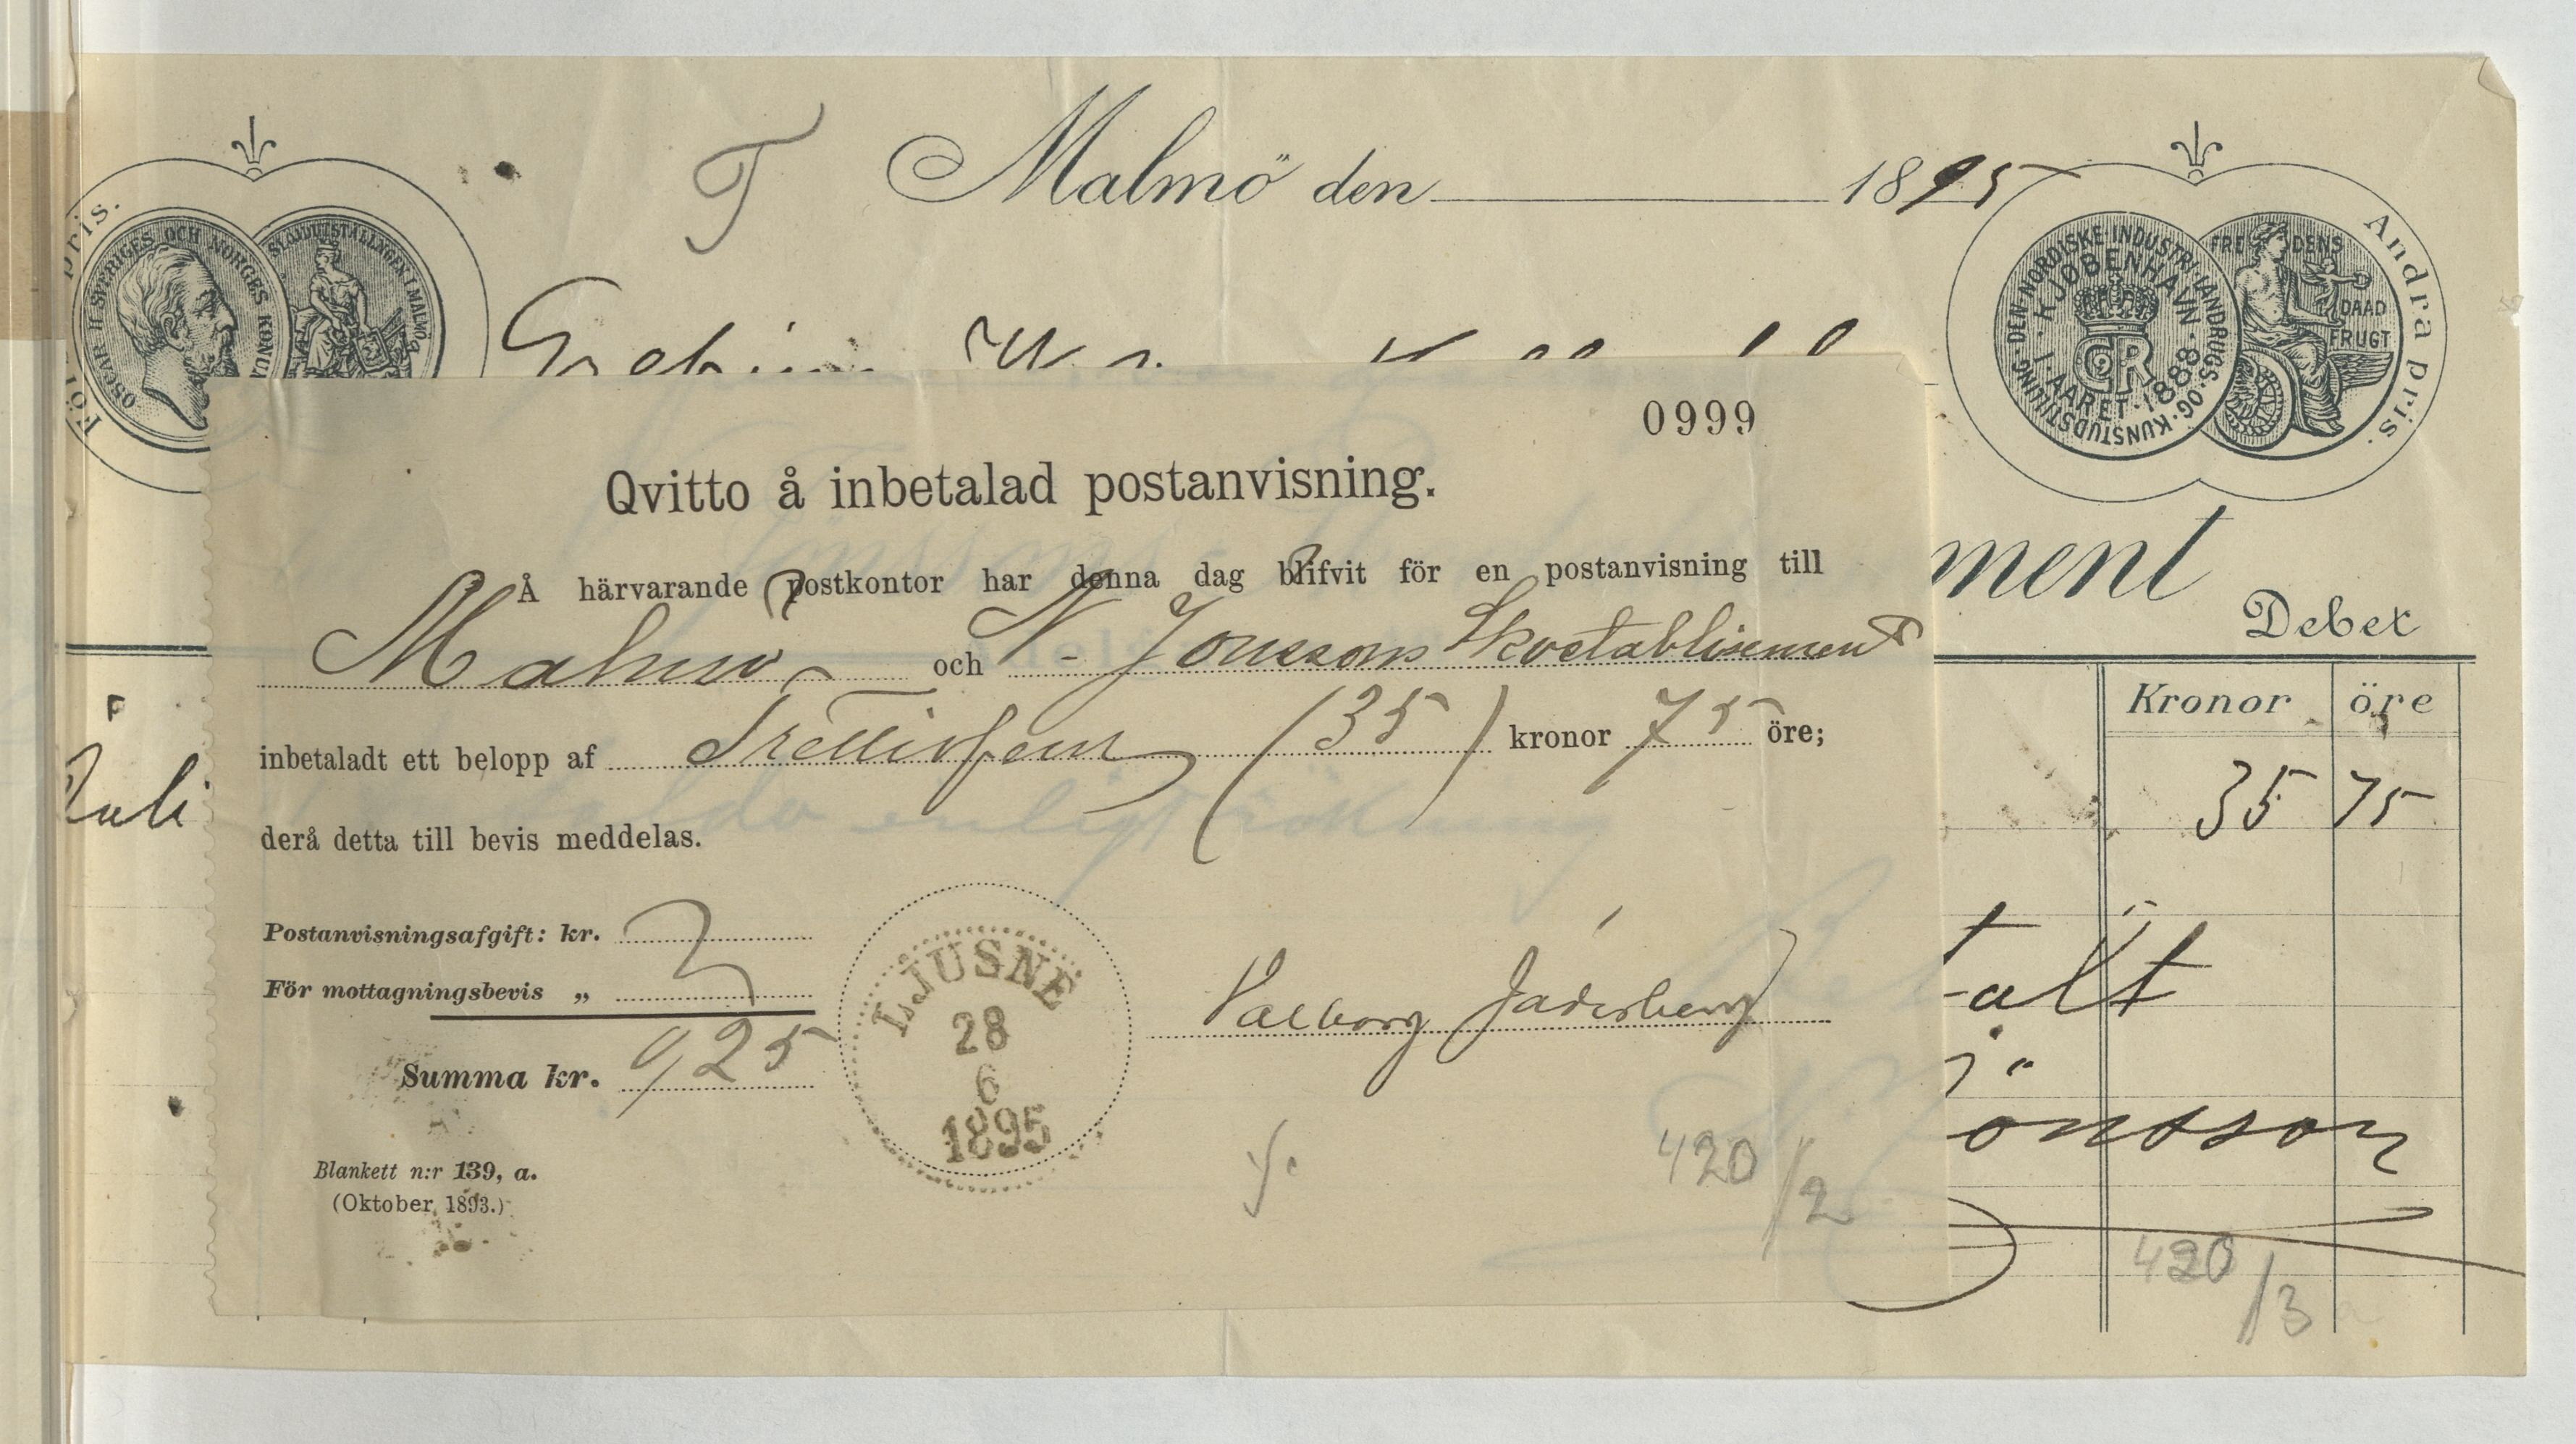 T
Malmö den 1895
Första pris.
OSCAR II SVERIGES OCH NORGES KONUNG
SLÖJDUTSTÄLLNGEN I MALMÖ
DEN NORDISKE INDUSTRI-LANDBRUGS- OG KUNSTUDSTILLING
I KJØBENHAVN
I AARET 1888
CR
FREDENS DAAD FRUGT
Andra pris.
0999
Qvitto å inbetalad postanvisning.
Å härvarande postkontor har denna dag blifvit för en postanvisning till
Malmö och N. Jönssons Skoetablisement
inbetaladt ett belopp af Trettiofem (35) kronor 75 öre;
derå detta till bevis meddelas.
Postanvisningsafgift: kr.
För mottagningsbevis „
Summa kr. 925
LJUSNE
28
6
1895
Valborg Jäderberg
420/2
Blankett n:r 139, a.
(Oktober, 1893.)
ment
Debet
Kronor öre
Juli
35 75
alt
onsson
420/3